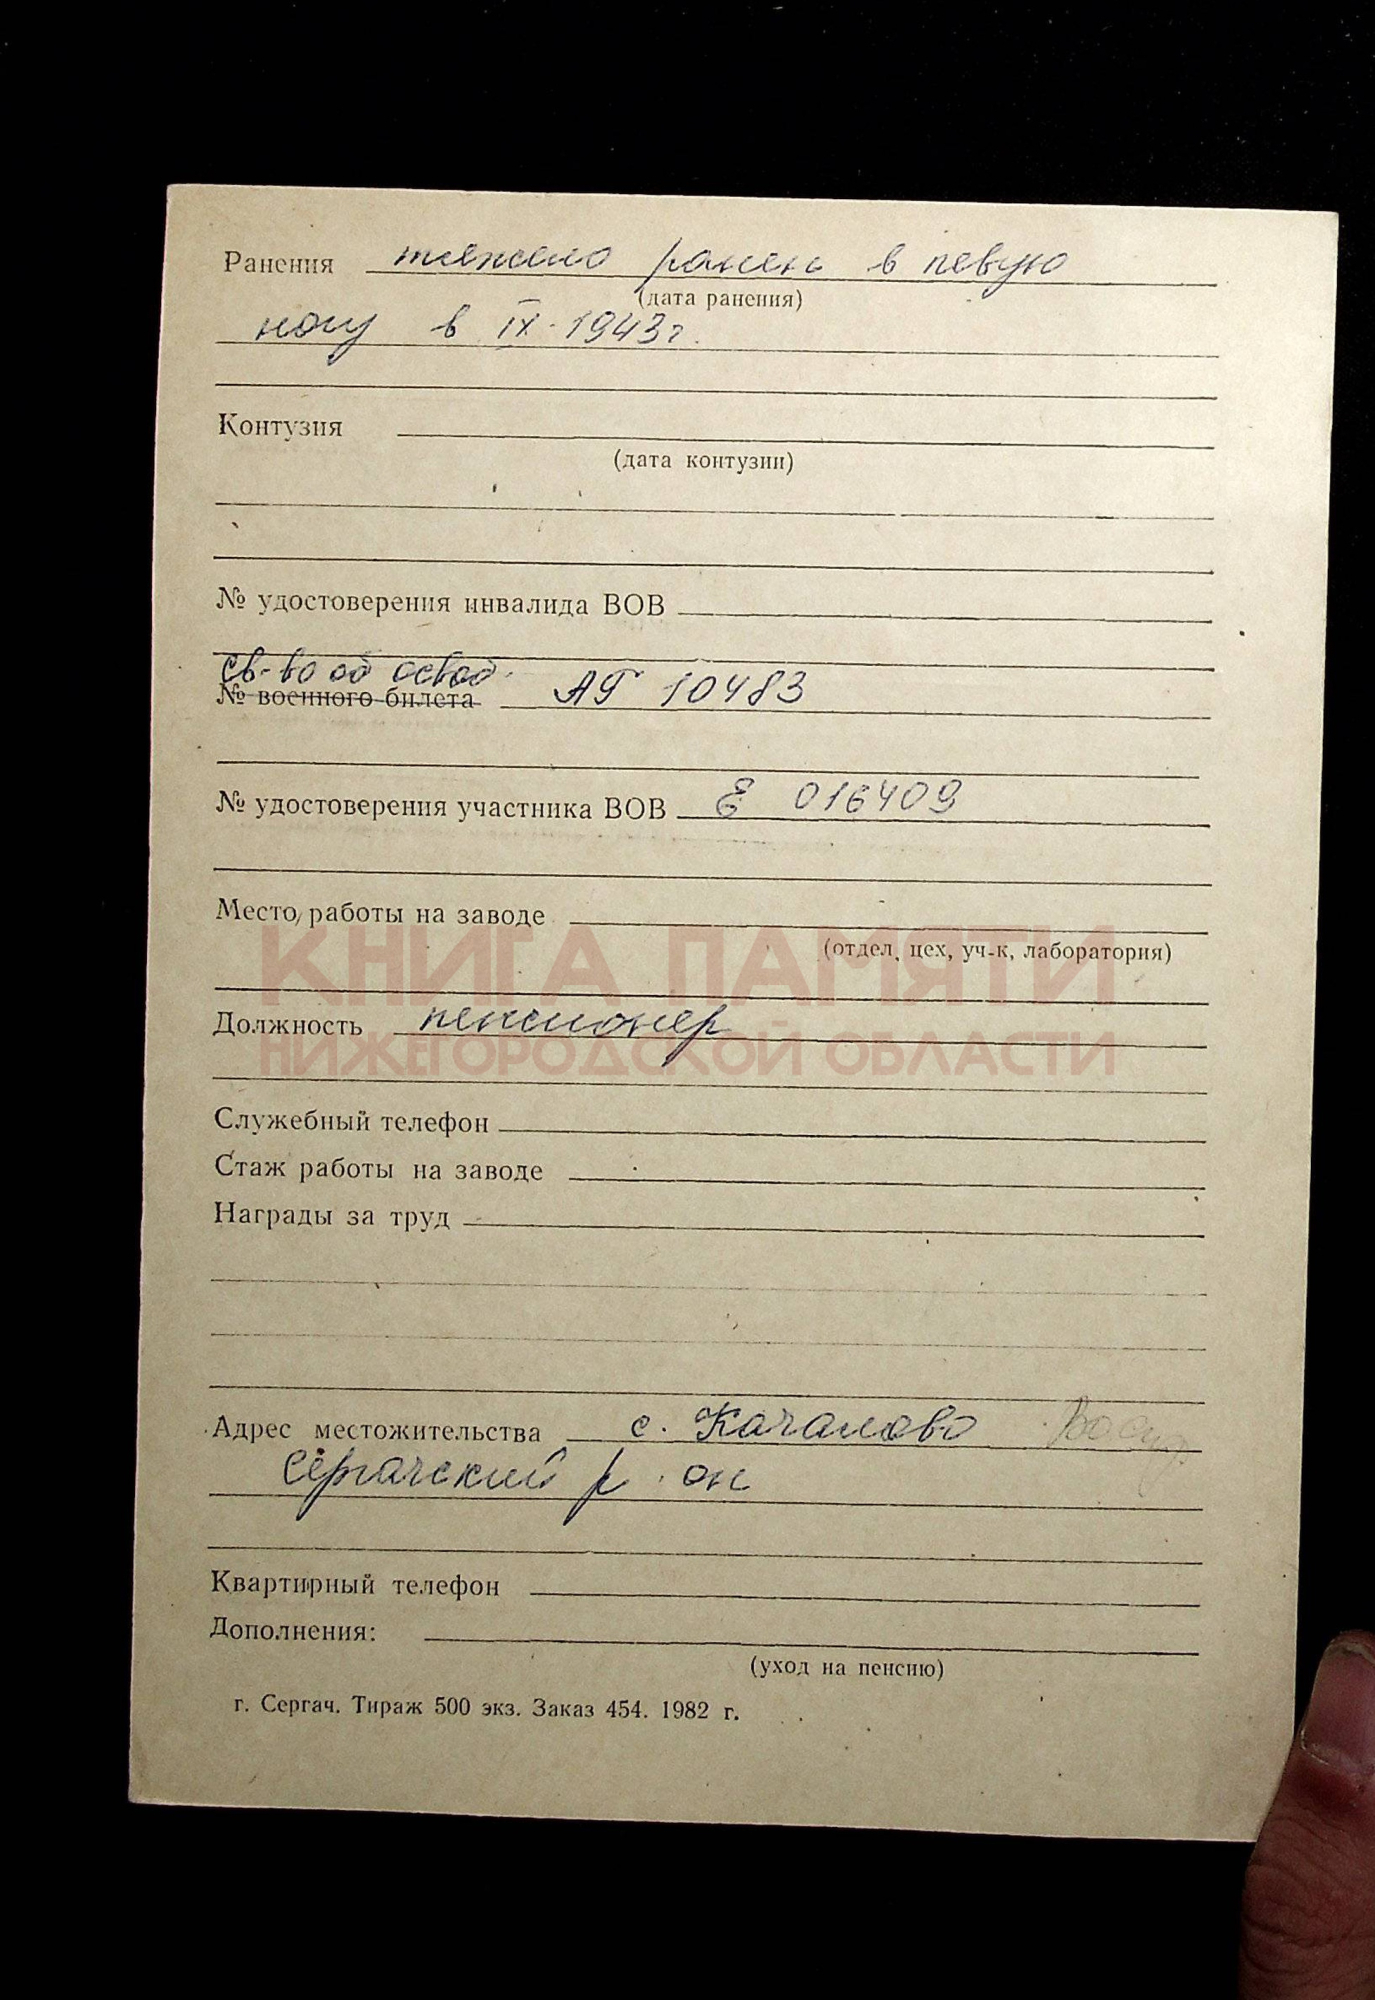 Ранения тяжело ранен в левую
(дата ранения)
ногу в IX-1943г.
Контузия
(дата контузии)
№ удостоверения инвалида ВОВ
св-во об освоб.
№ военного билета АГ 10483
№ удостоверения участника ВОВ Е 016409
Место работы на заводе
(отдел, цех, уч-к, лаборатория)
КНИГА ПАМЯТИ
Должность пенсионер
НИЖЕГОРОДСКОЙ ОБЛАСТИ
Служебный телефон
Стаж работы на заводе
Награды за труд
Адрес местожительства с. Качалово
Сергачский р-он
Квартирный телефон
Дополнения:
(уход на пенсию)
г. Сергач. Тираж 500 экз. Заказ 454. 1982 г.